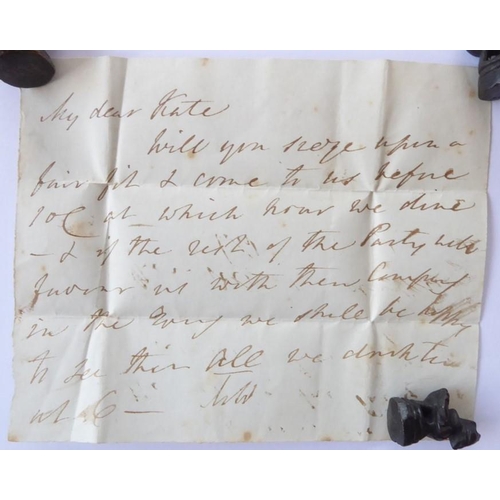 My dear Kate
Will you seize upon a
fair fit & come to us before
at which hour we dine
– & if the rest of the Party will
favour us with their Company
in the Eveng we shall be happy
to see them all we drink tea
at